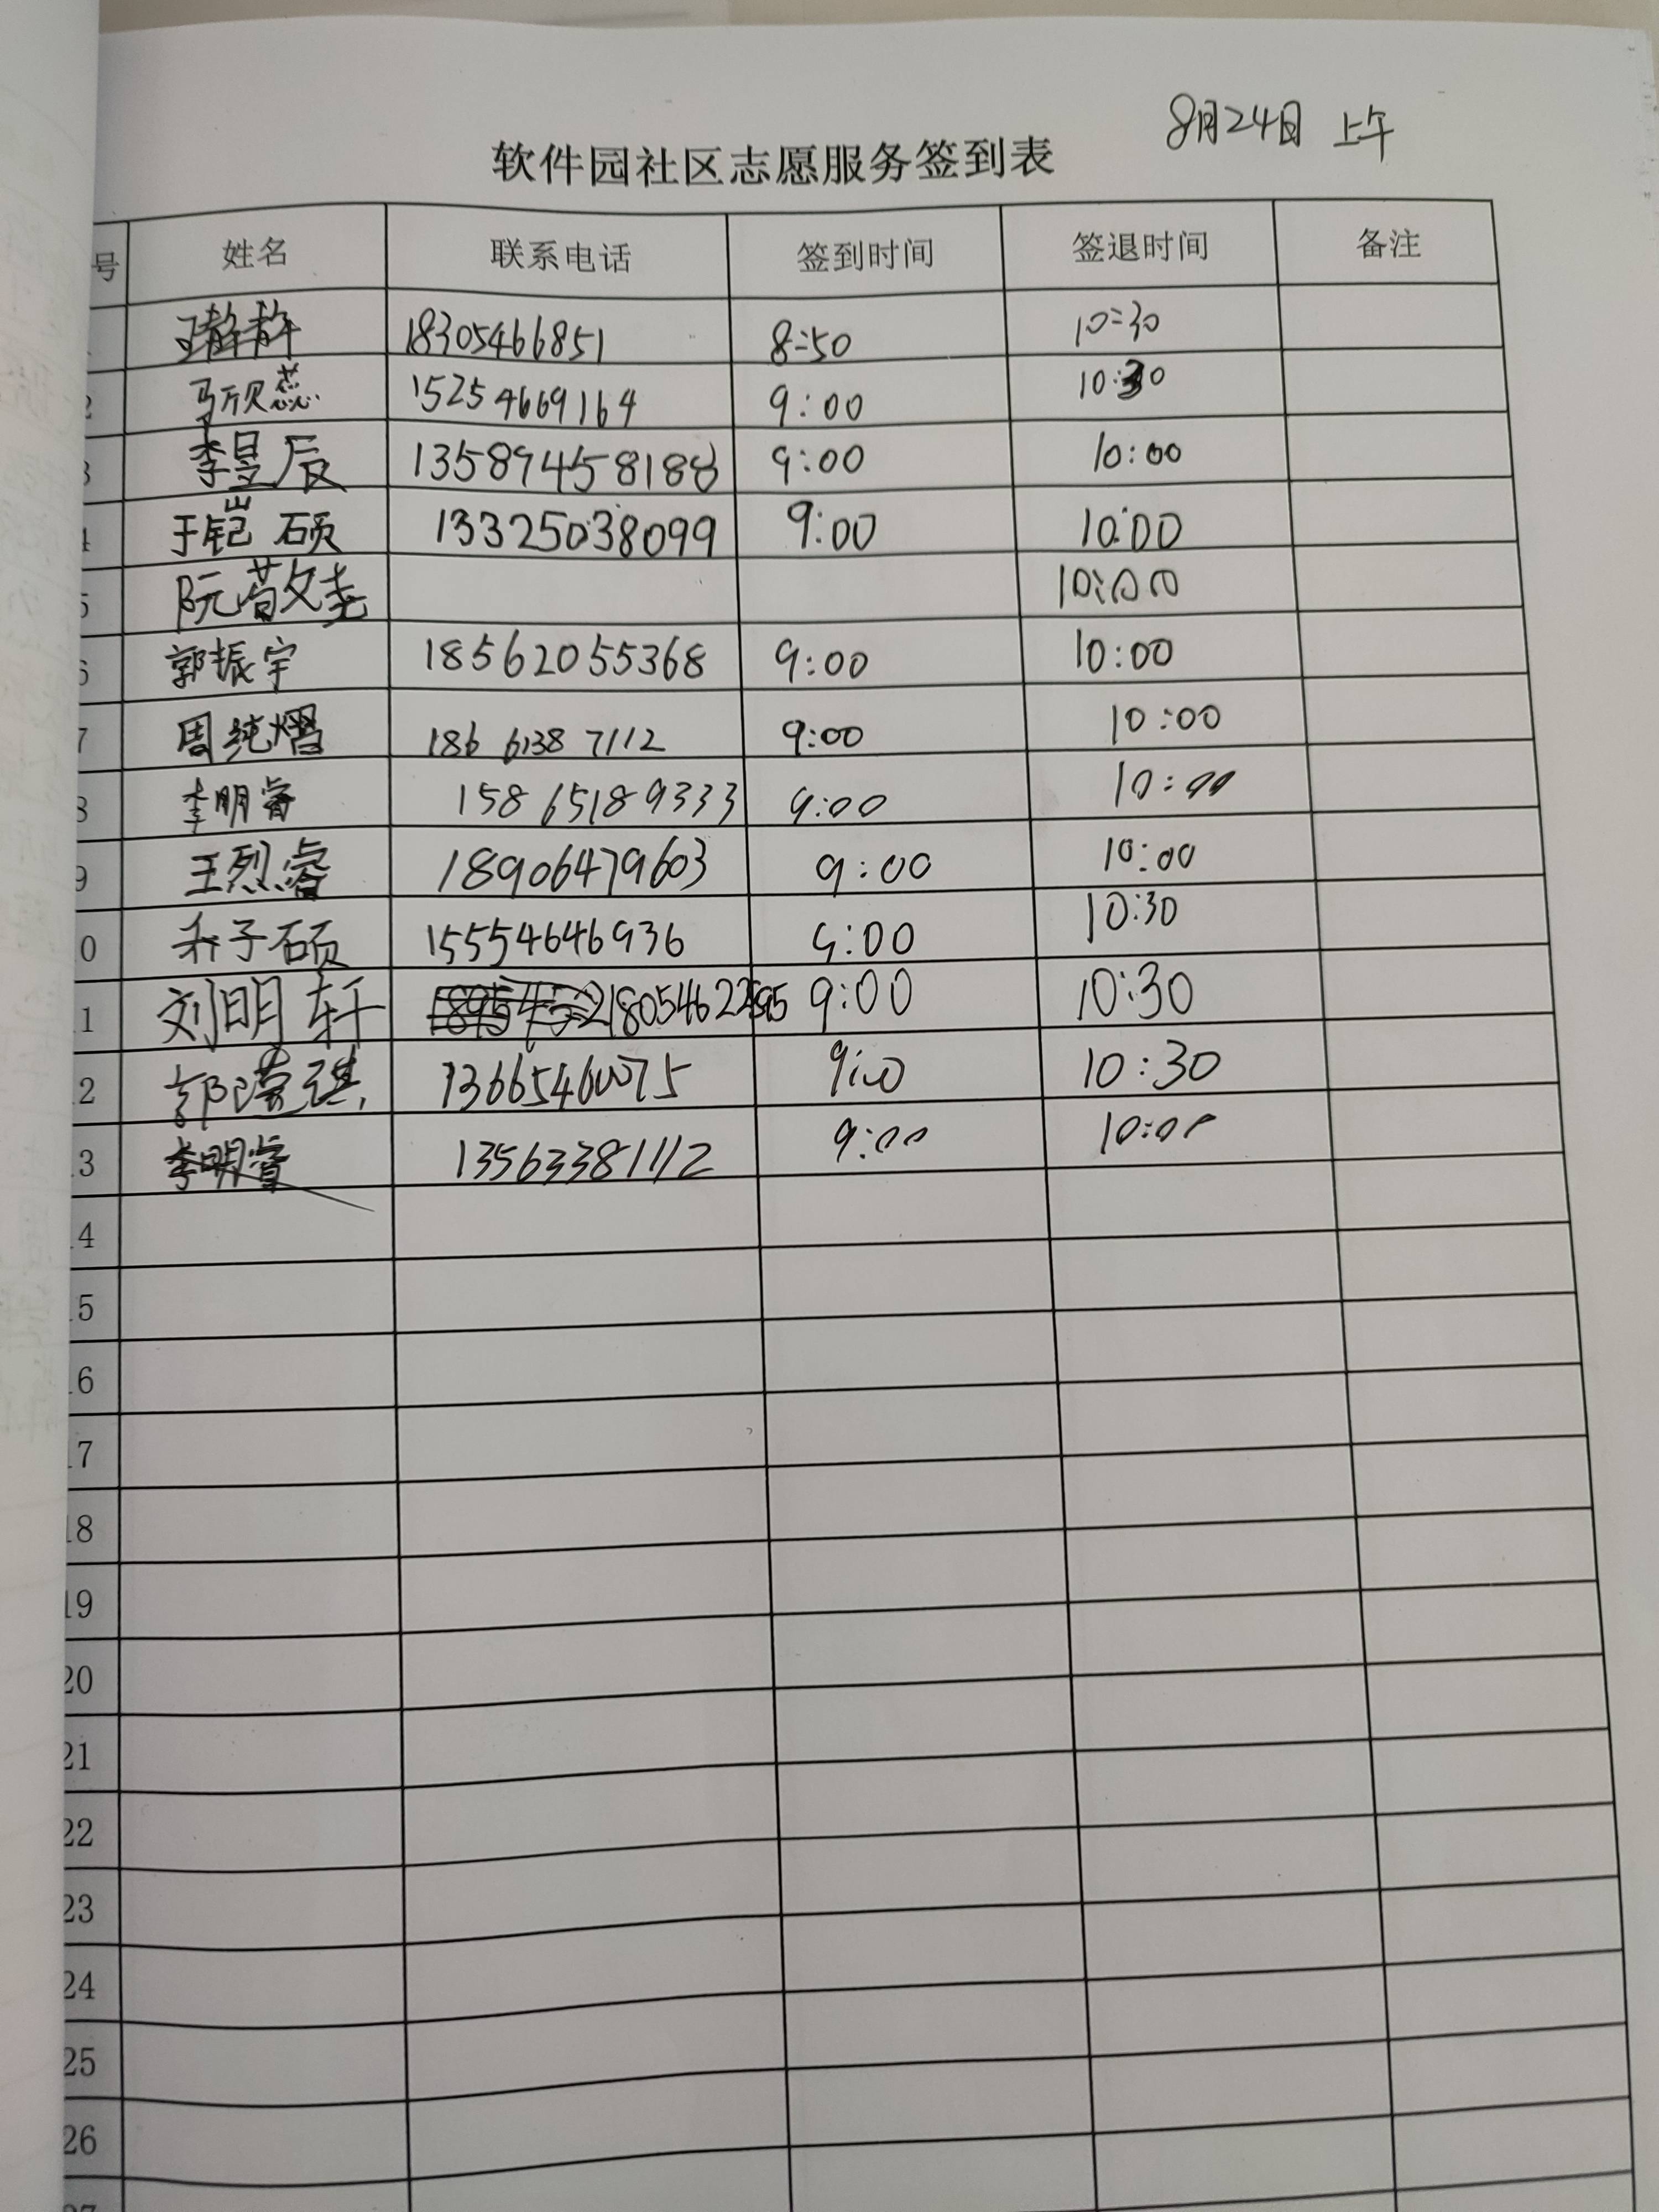 8月24日 上午
软件园社区志愿服务签到表
号 姓名 联系电话 签到时间 签退时间 备注
王静静 18305466851 8:50 10:30
2 马欣蕊 15254669164 9:00 10:30
3 李昱辰 13589458188 9:00 10:00
4 于铠硕 13325038099 9:00 10:00
5 阮 10:00
6 郭振宇 18562055368 9:00 10:00
7 周纯熠 186 6138 7112 9:00 10:00
8 李明睿 158 6518 9333 9:00 10:00
9 王烈睿 18906479603 9:00 10:00
0 子硕 15554646936 9:00 10:30
1 刘明轩 9:00 10:30
2 琪 9:00 10:30
3 李明睿 13563381112 9:00 10:00
14
15
16
17
18
19
20
21
22
23
24
25
26
27